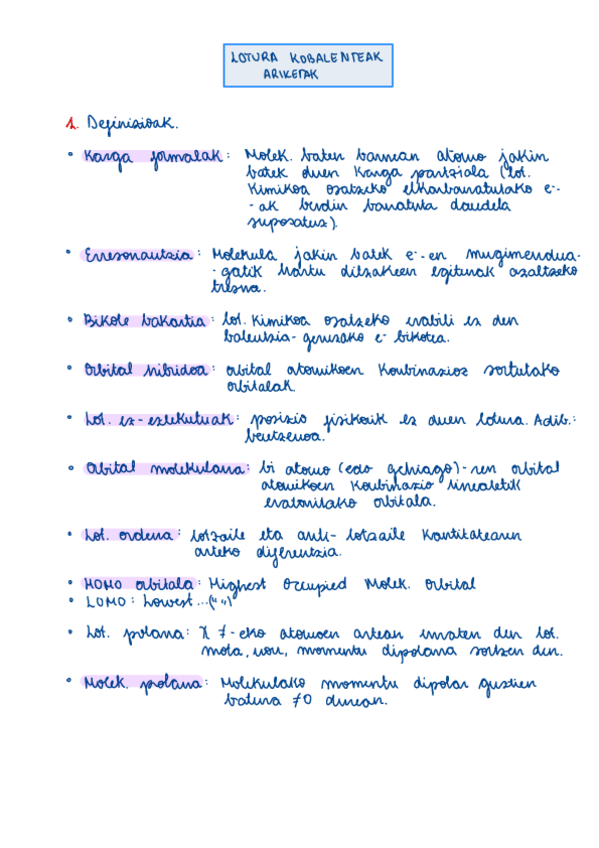 LOTURA KOBALENTEAK
ARIKETAK
1. Definizioak.
• Karga formalak: Molek. baten barnean atomo jakin
batek duen karga partziala (lot.
kimikoa osatzeko elkarbanatutako e-
-ak berdin banatuta daudela
suposatuz).
• Erresonantzia: Molekula jakin batek e-en mugimendua-
-gatik hartu ditzakeen egiturak azaltzeko
tresna.
• Bikote bakartia: lot. kimikoa osatzeko erabili ez den
balentzia-geruzako e- bikotea.
• Orbital hibridoa: orbital atomikoen konbinazioz sortutako
orbitalak.
• Lot. ez-ezlekutuak: posizio fisikorik ez duen lotura. Adib.:
bentzenoa.
• Orbital molekularra: bi atomo (edo gehiago)-ren orbital
atomikoen konbinazio linealetik
eratorritako orbitala.
• Lot. ordena: lotzaile eta anti-lotzaile kantitatearen
arteko diferentzia.
• HOMO orbitala: Highest Occupied Molek. Orbital
• LOMO: Lowest...(" ")
• Lot. polarra: X ≠-eko atomoen artean ematen den lot.
mota, non, momentu dipolarra sortzen den.
• Molek. polarra: Molekulako momentu dipolar guztien
batura ≠0 denean.